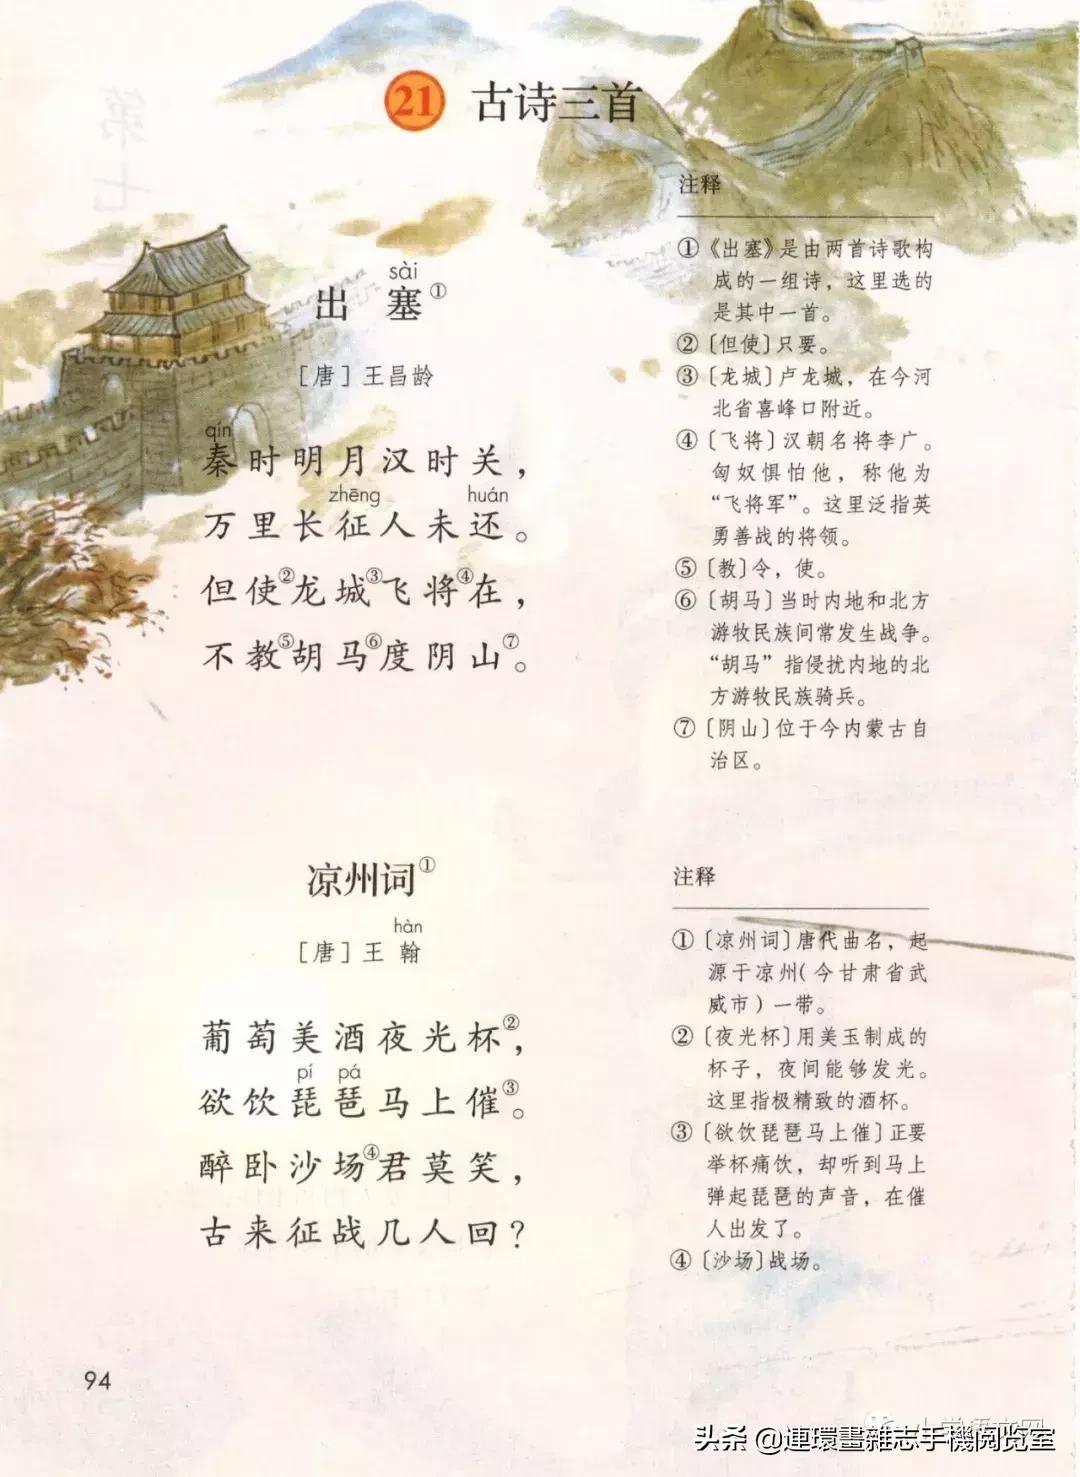 21 古诗三首
sài
出塞①
[唐]王昌龄
qín
秦时明月汉时关，
zhēng huán
万里长征人未还。
但使②龙城③飞将④在，
不教⑤胡马⑥度阴山⑦。
注释
①《出塞》是由两首诗歌构
成的一组诗，这里选的
是其中一首。
②〔但使〕只要。
③〔龙城〕卢龙城，在今河
北省喜峰口附近。
④〔飞将〕汉朝名将李广。
匈奴惧怕他，称他为
“飞将军”。这里泛指英
勇善战的将领。
⑤〔教〕令，使。
⑥〔胡马〕当时内地和北方
游牧民族间常发生战争。
“胡马”指侵扰内地的北
方游牧民族骑兵。
⑦〔阴山〕位于今内蒙古自
治区。
凉州词①
hàn
[唐]王翰
葡萄美酒夜光杯②，
pí pá
欲饮琵琶马上催③。
醉卧沙场④君莫笑，
古来征战几人回？
注释
①〔凉州词〕唐代曲名，起
源于凉州（今甘肃省武
威市）一带。
②〔夜光杯〕用美玉制成的
杯子，夜间能够发光。
这里指极精致的酒杯。
③〔欲饮琵琶马上催〕正要
举杯痛饮，却听到马上
弹起琵琶的声音，在催
人出发了。
④〔沙场〕战场。
94
小学语文网
头条 @連環畫雜志手機阅览室
第七